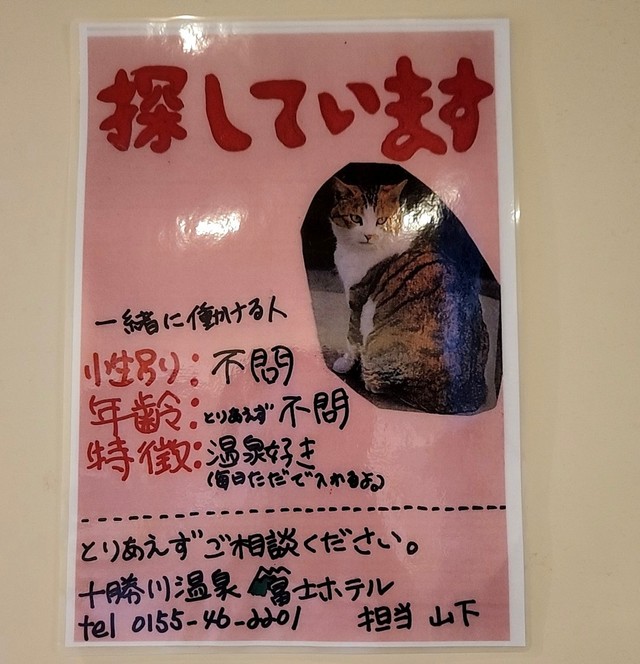 探しています
一緒に働ける人
性別：不問
年齢：とりあえず不問
特徴：温泉好き
（毎日ただで入れるよ。）
とりあえずご相談ください。
十勝川温泉 富士ホテル
tel 0155-46-2201 担当 山下